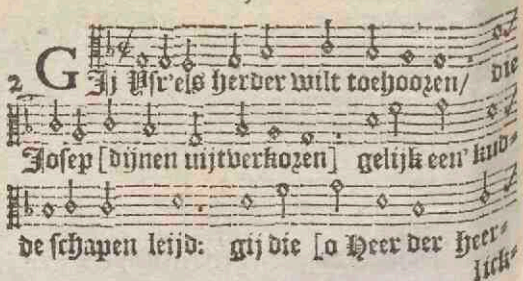 2 GIj Isr'els herder wilt toehooren/ die
Josep [dijnen uijtverkoren] gelijk een' kud⸗
de schapen leijd: gij die [o Heer der heer⸗
lick⸗